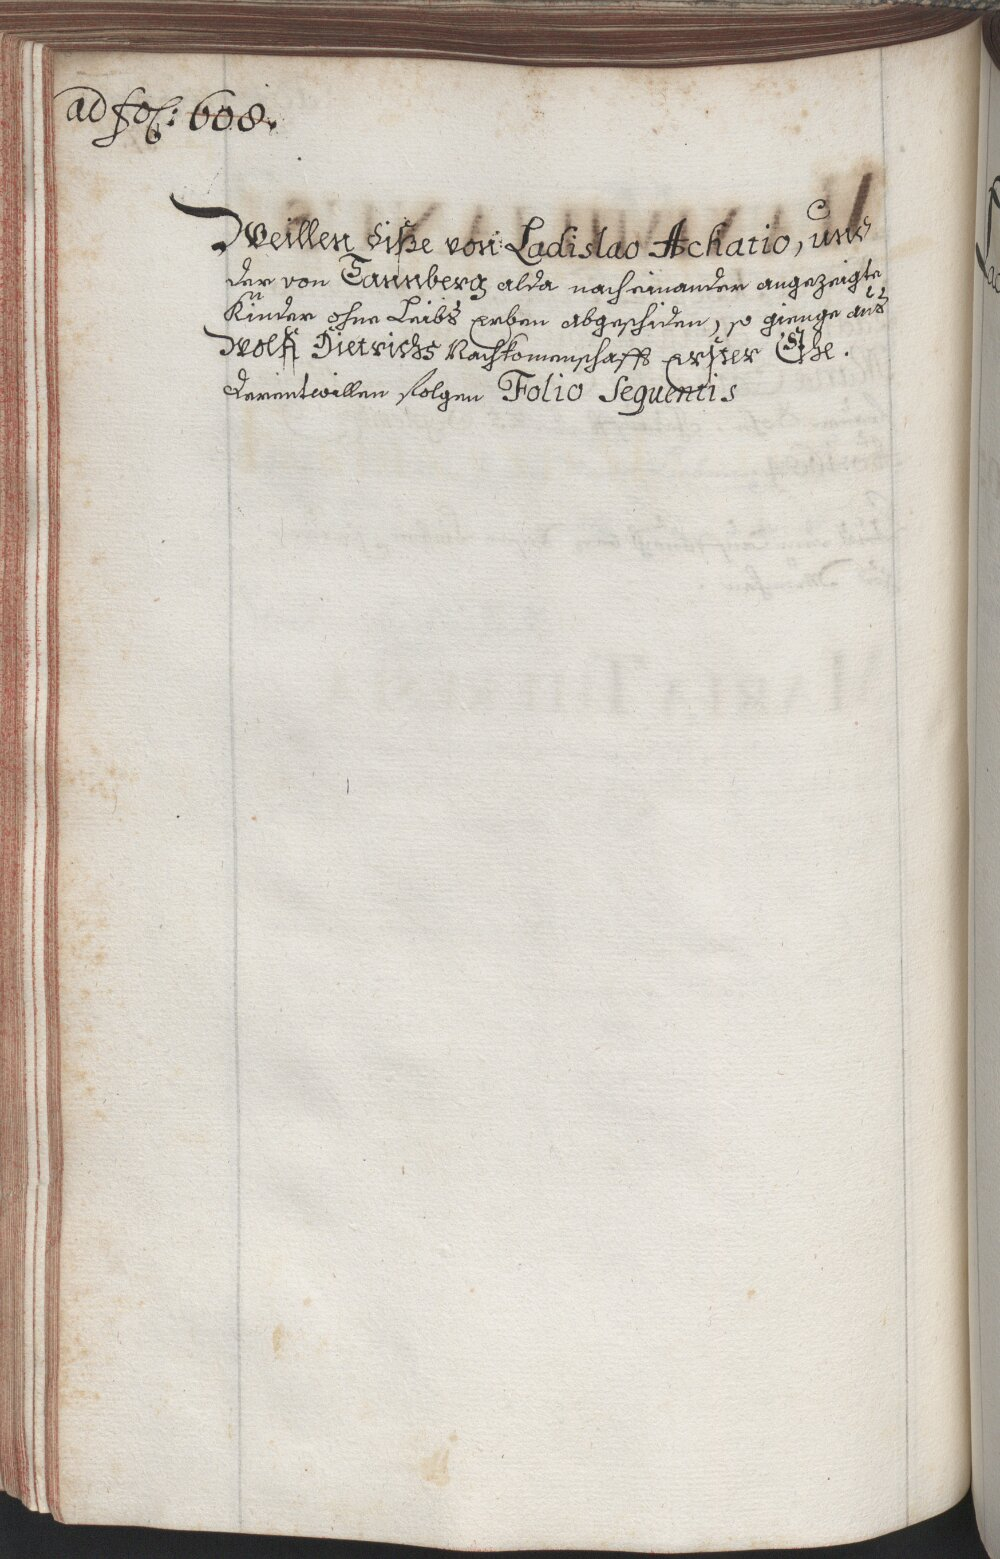 ad fol: 608.
Weillen diße von Ladislao Achatio, und
der von Tannberg alda nacheinander angezeigte
Kinder ohne Leibs erben abgeschiden, so gienge aus
Wolf Dietrichs Nachkomenschafft erster Ehe.
derentwillen folgen Folio Sequentis